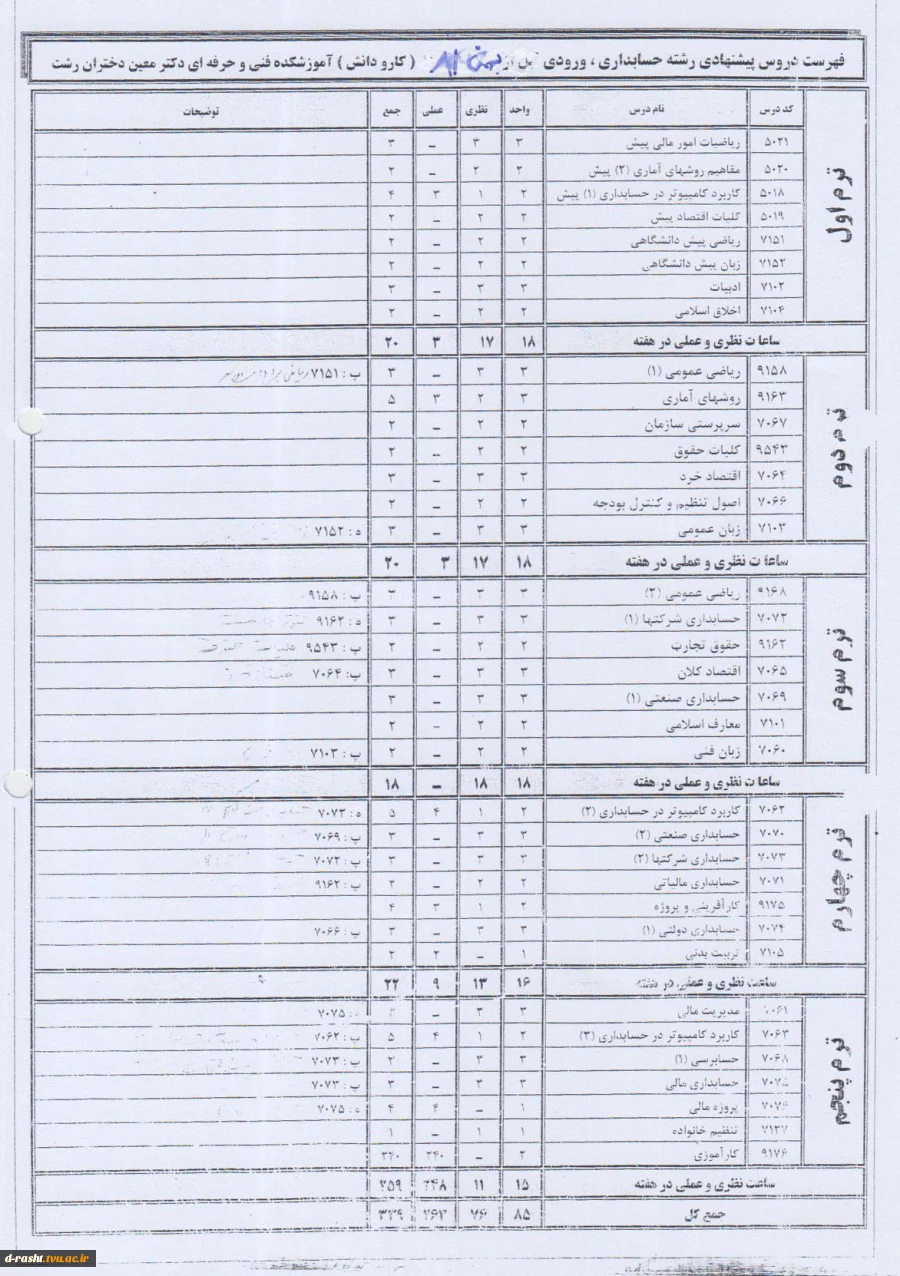 فهرست دروس پیشنهادی رشته حسابداری ، ورودی قبل از بهمن ۸۱ ( کارو دانش ) آموزشکده فنی و حرفه ای دکتر معین دختران رشت
کد درس نام درس واحد نظری عملی جمع توضیحات
ترم اول
۵۰۲۱ ریاضیات امور مالی پیش ۳ ۳ – ۳
۵۰۲۰ مفاهیم روشهای آماری (۲) پیش ۲ ۲ – ۲
۵۰۱۸ کاربرد کامپیوتر در حسابداری (۱) پیش ۲ ۱ ۳ ۴
۵۰۱۹ کلیات اقتصاد پیش ۲ ۲ – ۲
۷۱۵۱ ریاضی پیش دانشگاهی ۲ ۲ – ۲
۷۱۵۲ زبان پیش دانشگاهی ۲ ۲ – ۲
۷۱۰۲ ادبیات ۳ ۳ – ۳
۷۱۰۴ اخلاق اسلامی ۲ ۲ – ۲
ساعات نظری و عملی در هفته ۱۸ ۱۷ ۳ ۲۰
ترم دوم
۹۱۵۸ ریاضی عمومی (۱) ۳ ۳ – ۳ پ : ۷۱۵۱
۹۱۶۳ روشهای آماری ۳ ۲ ۳ ۵
۷۰۶۷ سرپرستی سازمان ۲ ۲ – ۲
۹۵۴۳ کلیات حقوق ۲ ۲ – ۲
۷۰۶۴ اقتصاد خرد ۳ ۳ – ۳
۷۰۶۶ اصول تنظیم و کنترل بودجه ۲ ۲ – ۲
۷۱۰۳ زبان عمومی ۳ ۳ – ۳ ه : ۷۱۵۲
ساعات نظری و عملی در هفته ۱۸ ۱۷ ۳ ۲۰
ترم سوم
۹۱۶۸ ریاضی عمومی (۲) ۳ ۳ – ۳ پ : ۹۱۵۸
۷۰۷۲ حسابداری شرکتها (۱) ۳ ۳ – ۳ ه : ۹۱۶۲
۹۱۶۲ حقوق تجارت ۲ ۲ – ۲ پ : ۹۵۴۳
۷۰۶۵ اقتصاد کلان ۳ ۳ – ۳ پ: ۷۰۶۴
۷۰۶۹ حسابداری صنعتی (۱) ۳ ۳ – ۳
۷۱۰۱ معارف اسلامی ۲ ۲ – ۲
۷۰۶۰ زبان فنی ۲ ۲ – ۲ پ : ۷۱۰۳
ساعات نظری و عملی در هفته ۱۸ ۱۸ – ۱۸
ترم چهارم
۷۰۶۲ کاربرد کامپیوتر در حسابداری (۲) ۲ ۱ ۴ ۵ ه : ۷۰۷۳
۷۰۷۰ حسابداری صنعتی (۲) ۳ ۳ – ۳ پ : ۷۰۶۹
۷۰۷۳ حسابداری شرکتها (۲) ۳ ۳ – ۳ پ : ۷۰۷۲
۷۰۷۱ حسابداری مالیاتی ۲ ۲ – ۲ پ : ۹۱۶۲
۹۱۷۵ کارآفرینی و پروژه ۲ ۱ ۳ ۴
۷۰۷۴ حسابداری دولتی (۱) ۳ ۳ – ۳ پ : ۷۰۶۶
۷۱۰۵ تربیت بدنی ۱ – ۲ ۲
ساعت نظری و عملی در هفته ۱۶ ۱۳ ۹ ۲۲
ترم پنجم
۷۰۶۱ مدیریت مالی ۳ ۳ – : ۷۰۷۵
۷۰۶۳ کاربرد کامپیوتر در حسابداری (۳) ۲ ۱ ۴ ۵ پ : ۷۰۶۲
۷۰۶۸ حسابرسی (۱) ۳ ۳ – ۲ پ : ۷۰۷۳
۷۰۷۵ حسابداری مالی ۳ ۳ – ۳ پ : ۷۰۷۳
۷۰۷۶ پروژه مالی ۱ – ۴ ۴ ه : ۷۰۷۵
۷۱۲۷ تنظیم خانواده ۱ ۱ – ۱
۹۱۷۶ کارآموزی ۲ – ۲۴۰ ۲۴۰
ساعت نظری و عملی در هفته ۱۵ ۱۱ ۲۴۸ ۲۵۹
جمع کل ۸۵ ۷۶ ۲۶۳ ۳۳۹
d-rasht.tvu.ac.ir